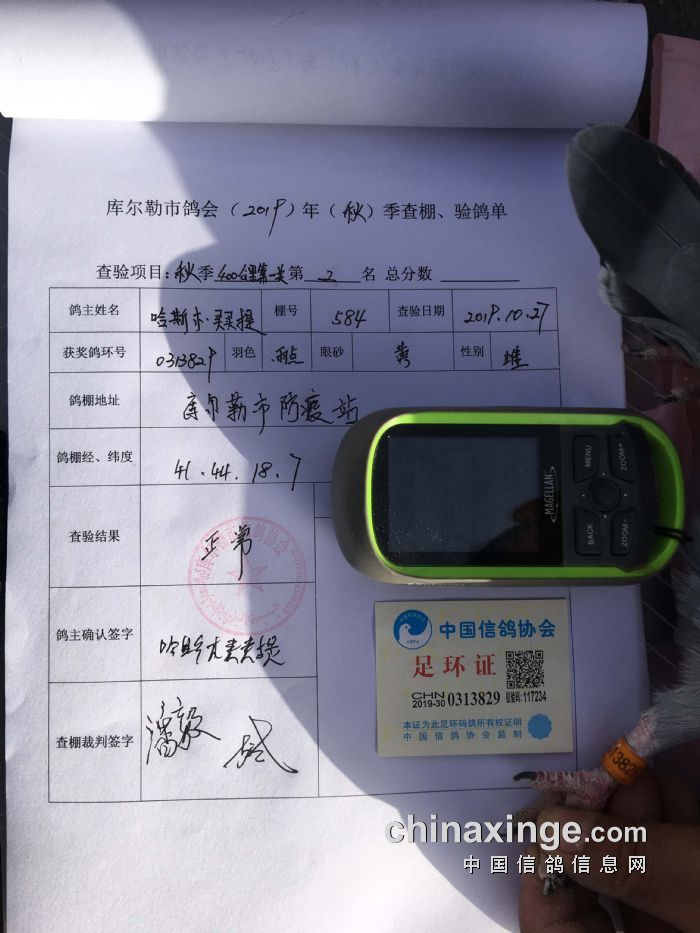 库尔勒市鸽会（2019）年（秋）季查棚、验鸽单
查验项目：秋季400公里第一关第 2 名 总分数
鸽主姓名 哈斯木·买买提 棚号 584 查验日期 2019.10.27
获奖鸽环号 0313829 羽色 雨点 眼砂 黄 性别 雌
鸽棚地址 库尔勒市防疫站
鸽棚经、纬度 41.44.18.7
查验结果 正常
鸽主确认签字
查棚裁判签字
MAGELLAN
MENU
ZOOM+
BACK
ZOOM-
中国信鸽协会
足环证
CHN
2019-30 0313829 校验码:117234
本证为此足环码鸽所有权证明
中国信鸽协会监制
chinaxinge.com
中国信鸽信息网